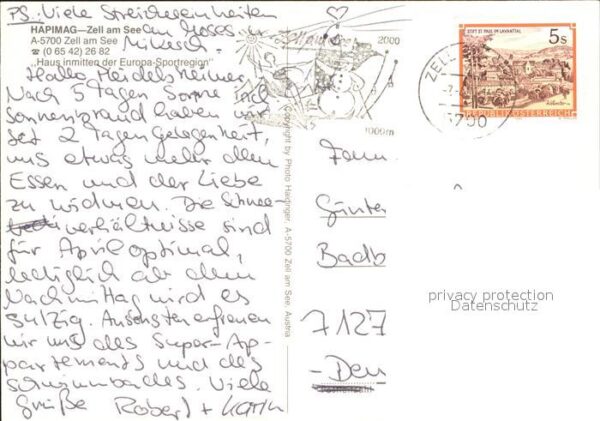 PS: Viele Streicheleinheiten
an Moses u.
Mikesch.
HAPIMAG—Zell am See
A-5700 Zell am See
☎ (0 65 42) 26 82
„Haus inmitten der Europa-Sportregion"
Hallo Pleidelsheimer,
Nach 5 Tagen Sonne incl
Sonnenbrand haben wir
seit 2 Tagen Gelegenheit,
uns etwas mehr dem
Essen und der Liebe
zu widmen. Die Schnee-
verhältnisse sind
für April optimal,
lediglich ab dem
Nachmittag wird es
sulzig. Ansonsten erfreuen
wir uns des Super-Ap-
partements und des
Schwimmbades. Viele
Grüße Robert + Karin
Copyright by Photo Haidinger, A-5700 Zell am See, Austria
2000
1000m
ZELL
5700
STIFT ST. PAUL IM LAVANTTAL
5s
REPUBLIK ÖSTERREICH
Fam.
Günter
Badb
7127
-Den
privacy protection
Datenschutz